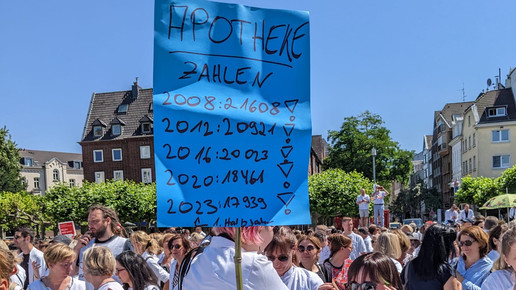 APOTHEKE
ZAHLEN
2008:21608
2012:20921
2016:20023
2020:18461
2023:17939